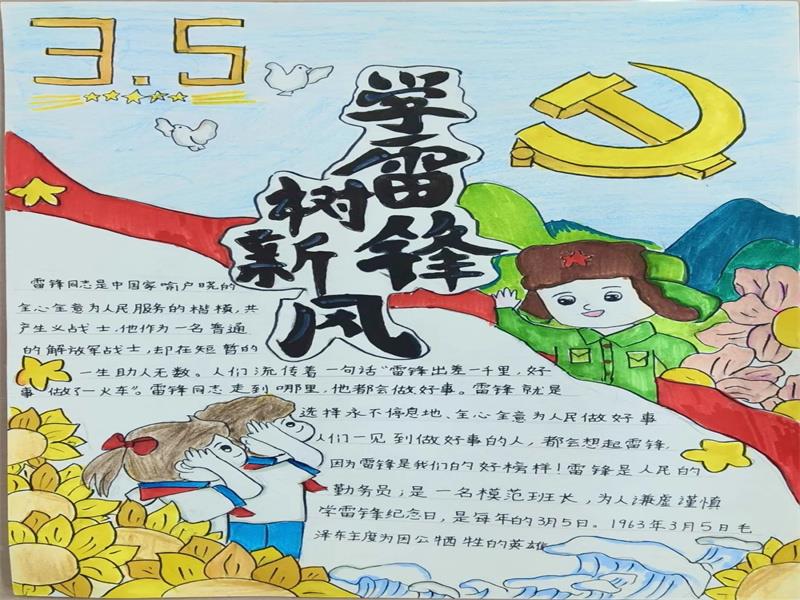 3.5
学雷锋
树新风
雷锋同志是中国家喻户晓的
全心全意为人民服务的楷模,共
产主义战士,他作为一名普通
的解放军战士,却在短暂的
一生助人无数。人们流传着一句话“雷锋出差一千里,好
事做了一火车”。雷锋同志走到哪里,他都会做好事。雷锋就是
选择永不停息地、全心全意为人民做好事
人们一见到做好事的人,都会想起雷锋.
因为雷锋是我们的好榜样!雷锋是人民的
勤务员;是一名模范班长,为人谦虚谨慎
学雷锋纪念日,是每年的3月5日。1963年3月5日毛
泽东主度为因公牺牲的英雄